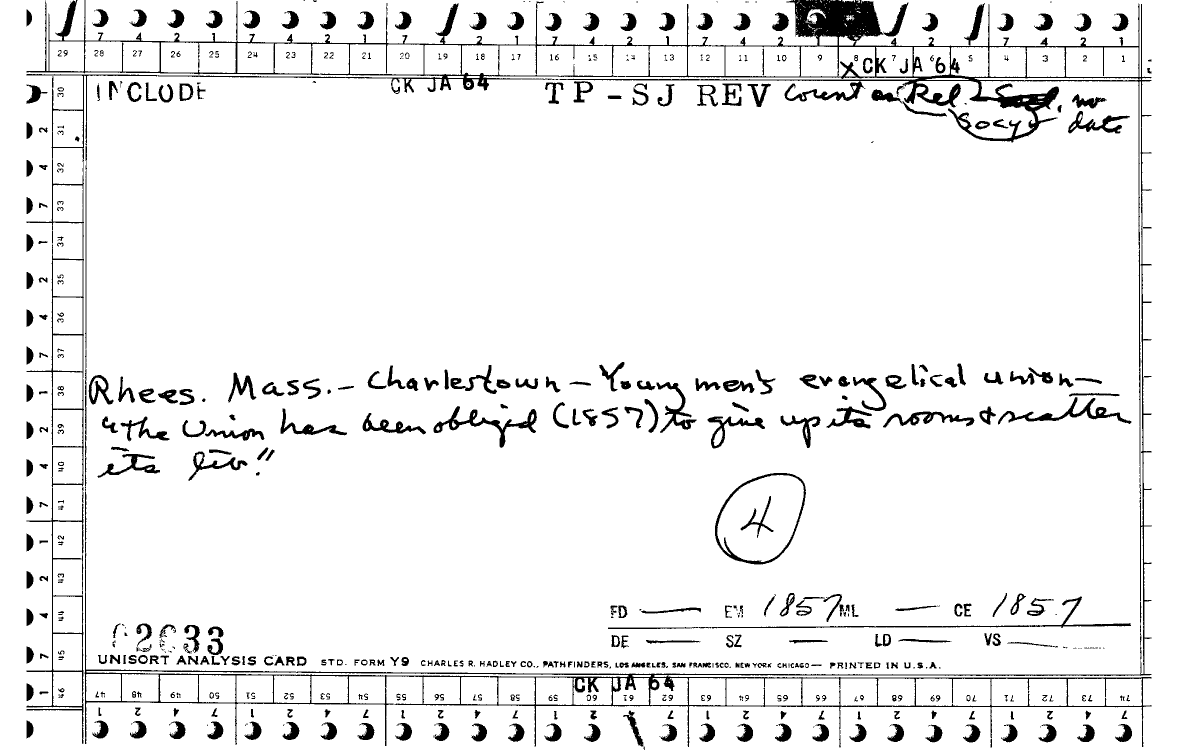 7 4 2 1 7 4 2 1 7 4 2 1 7 4 2 1 7 4 2 1 7 4 2 1
29 28 27 26 25 24 23 22 21 20 19 18 17 16 15 14 13 12 11 10 9 8 7 6 5 4 3 2 1
X CK JA 64
INCLUDE CK JA 64 TP-SJ REV Count as Rel. no
Socy date
30
2 31
4 32
7 33
1 34
2 35
4 36
7 37
1 38
2 39
4 40
7 41
1 42
2 43
4 44
7 45
46
Rhees. Mass. – Charlestown – Young men's evangelical union –
"the Union has been obliged (1857) to give up its rooms & scatter
its lib."
4
FD — EM 1857 ML — CE 1857
DE — SZ — LD — VS —
02633
UNISORT ANALYSIS CARD STD. FORM Y9 CHARLES R. HADLEY CO., PATHFINDERS, LOS ANGELES, SAN FRANCISCO, NEW YORK CHICAGO — PRINTED IN U.S.A.
CK JA 64
47 48 49 50 51 52 53 54 55 56 57 58 59 60 61 62 63 64 65 66 67 68 69 70 71 72 73 74
1 2 4 7 1 2 4 7 1 2 4 7 1 2 4 7 1 2 4 7 1 2 4 7 1 2 4 7